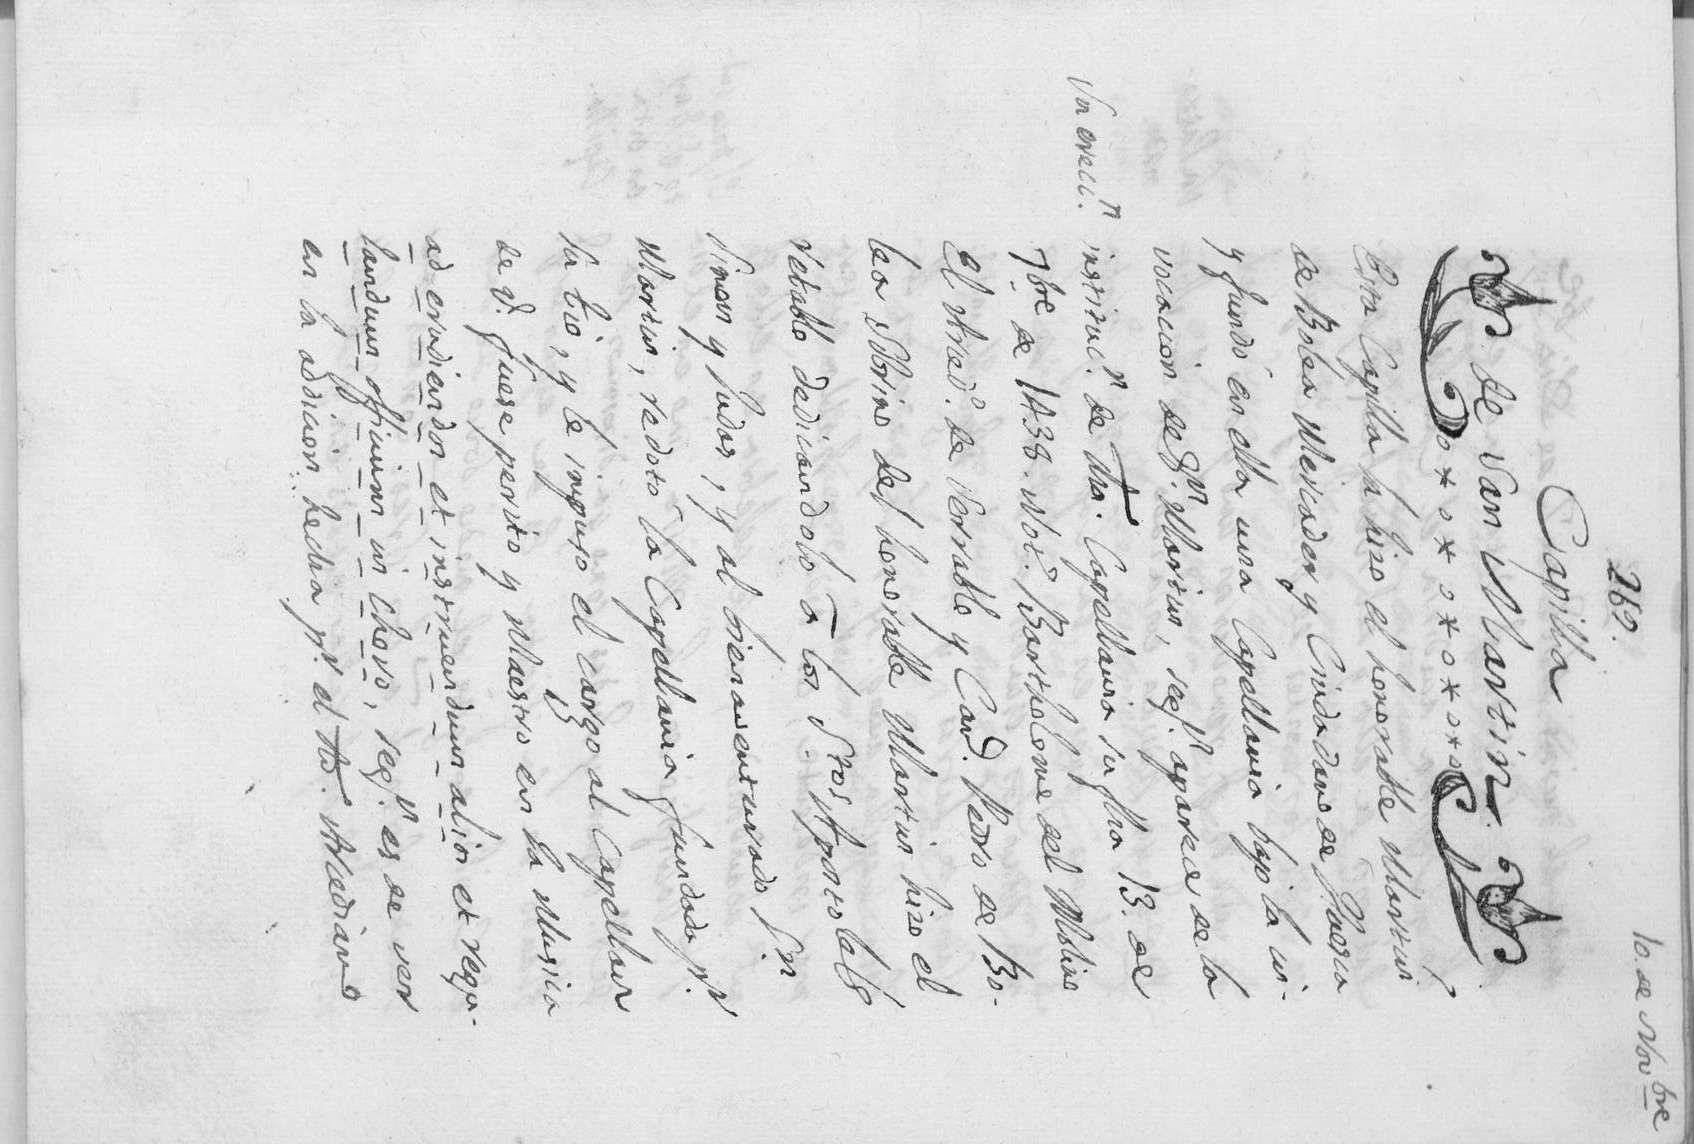 269.
10. de Nov.bre
Capilla
de San Martin.
Esta Capilla la hizo el honorable Martin
de Bolea Mercader y Ciudadano de Huesca
y fundó en ella una Capellania bajo la in-
vocacion de Sn. Martin, segn. aparece de la
Su ereccin. instituc.n de dha. Capellania su fha 13. de
7bre. de 1438. Not.o Bartholome del Molino
El Arced.o de Serrable y Can.o Pedro de Bo-
lea Sobrino del honorable Martin hizo el
retablo dedicandolo à los Stos. Apostoles
Simon y Judas, y al bienaventurado Sn.
Martin, redotò la Capellania fundada pr.
su tio, y le impuso el cargo al Capellan
de q. fuese perito y Maestro en la Musica
ad erudiendos et instruendum alios et regu-
landum officium in choro, segn. es de ver
en la adicion hecha pr. el dho. Arcediano